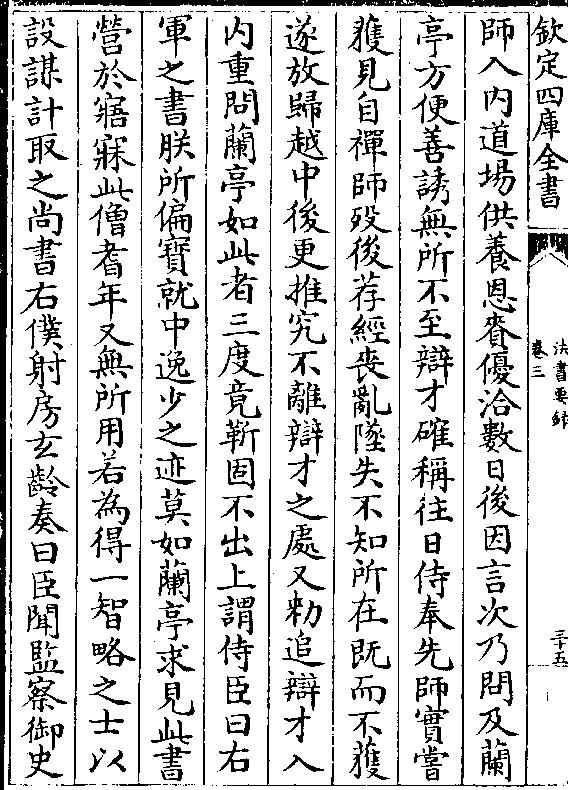 欽定四庫全書
法書要錄
卷三
三十五
師入内道場供養恩賚優洽數日後因言次乃問及蘭
亭方便善誘無所不至辯才確稱往日侍奉先師實嘗
獲見自禪師歿後荐經喪亂墜失不知所在既而不獲
遂放歸越中後更推究不離辯才之處又勑追辯才入
内重問蘭亭如此者三度竟靳固不出上謂侍臣曰右
軍之書朕所偏寳就中逸少之迹莫如蘭亭求見此書
營於寤寐此僧耆年又無所用若為得一智略之士以
設謀計取之尚書右僕射房玄齡奏曰臣聞監察御史